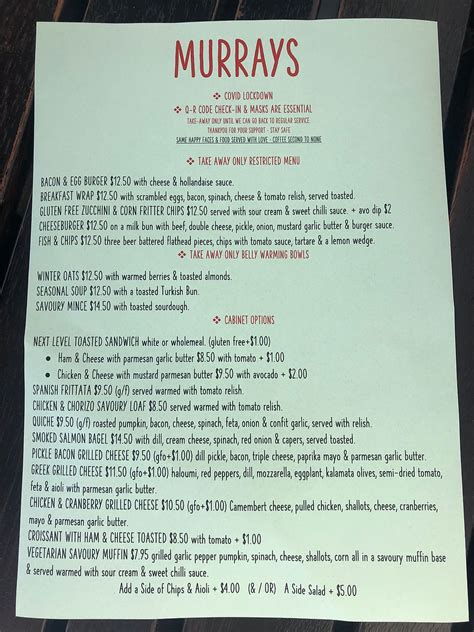 MURRAYS
❖ COVID LOCKDOWN
❖ Q-R CODE CHECK-IN & MASKS ARE ESSENTIAL
TAKE-AWAY ONLY UNTIL WE CAN GO BACK TO REGULAR SERVICE.
THANKYOU FOR YOUR SUPPORT - STAY SAFE
SAME HAPPY FACES & FOOD SERVED WITH LOVE - COFFEE SECOND TO NONE
❖ TAKE AWAY ONLY RESTRICTED MENU
BACON & EGG BURGER $12.50 with cheese & hollandaise sauce.
BREAKFAST WRAP $12.50 with scrambled eggs, bacon, spinach, cheese & tomato relish, served toasted.
GLUTEN FREE ZUCCHINI & CORN FRITTER CHIPS $12.50 served with sour cream & sweet chilli sauce. + avo dip $2
CHEESEBURGER $12.50 on a milk bun with beef, double cheese, pickle, onion, mustard garlic butter & burger sauce.
FISH & CHIPS $12.50 three beer battered flathead pieces, chips with tomato sauce, tartare & a lemon wedge.
❖ TAKE AWAY ONLY BELLY WARMING BOWLS
WINTER OATS $12.50 with warmed berries & toasted almonds.
SEASONAL SOUP $12.50 with a toasted Turkish Bun.
SAVOURY MINCE $14.50 with toasted sourdough.
❖ CABINET OPTIONS
NEXT LEVEL TOASTED SANDWICH white or wholemeal. (gluten free+$1.00)
• Ham & Cheese with parmesan garlic butter $8.50 with tomato + $1.00
• Chicken & Cheese with mustard parmesan butter $9.50 with avocado + $2.00
SPANISH FRITTATA $9.50 (g/f) served warmed with tomato relish.
CHICKEN & CHORIZO SAVOURY LOAF $8.50 served warmed with tomato relish.
QUICHE $9.50 (g/f) roasted pumpkin, bacon, cheese, spinach, feta, onion & confit garlic, served with relish.
SMOKED SALMON BAGEL $14.50 with dill, cream cheese, spinach, red onion & capers, served toasted.
PICKLE BACON GRILLED CHEESE $9.50 (gfo+$1.00) dill pickle, bacon, triple cheese, paprika mayo & parmesan garlic butter.
GREEK GRILLED CHEESE $11.50 (gfo+$1.00) haloumi, red peppers, dill, mozzarella, eggplant, kalamata olives, semi-dried tomato,
feta & aioli with parmesan garlic butter.
CHICKEN & CRANBERRY GRILLED CHEESE $10.50 (gfo+$1.00) Camembert cheese, pulled chicken, shallots, cheese, cranberries,
mayo & parmesan garlic butter.
CROISSANT WITH HAM & CHEESE TOASTED $8.50 with tomato + $1.00
VEGETARIAN SAVOURY MUFFIN $7.95 grilled garlic pepper pumpkin, spinach, cheese, shallots, corn all in a savoury muffin base
& served warmed with sour cream & sweet chilli sauce.
Add a Side of Chips & Aioli + $4.00 (& / OR) A Side Salad + $5.00